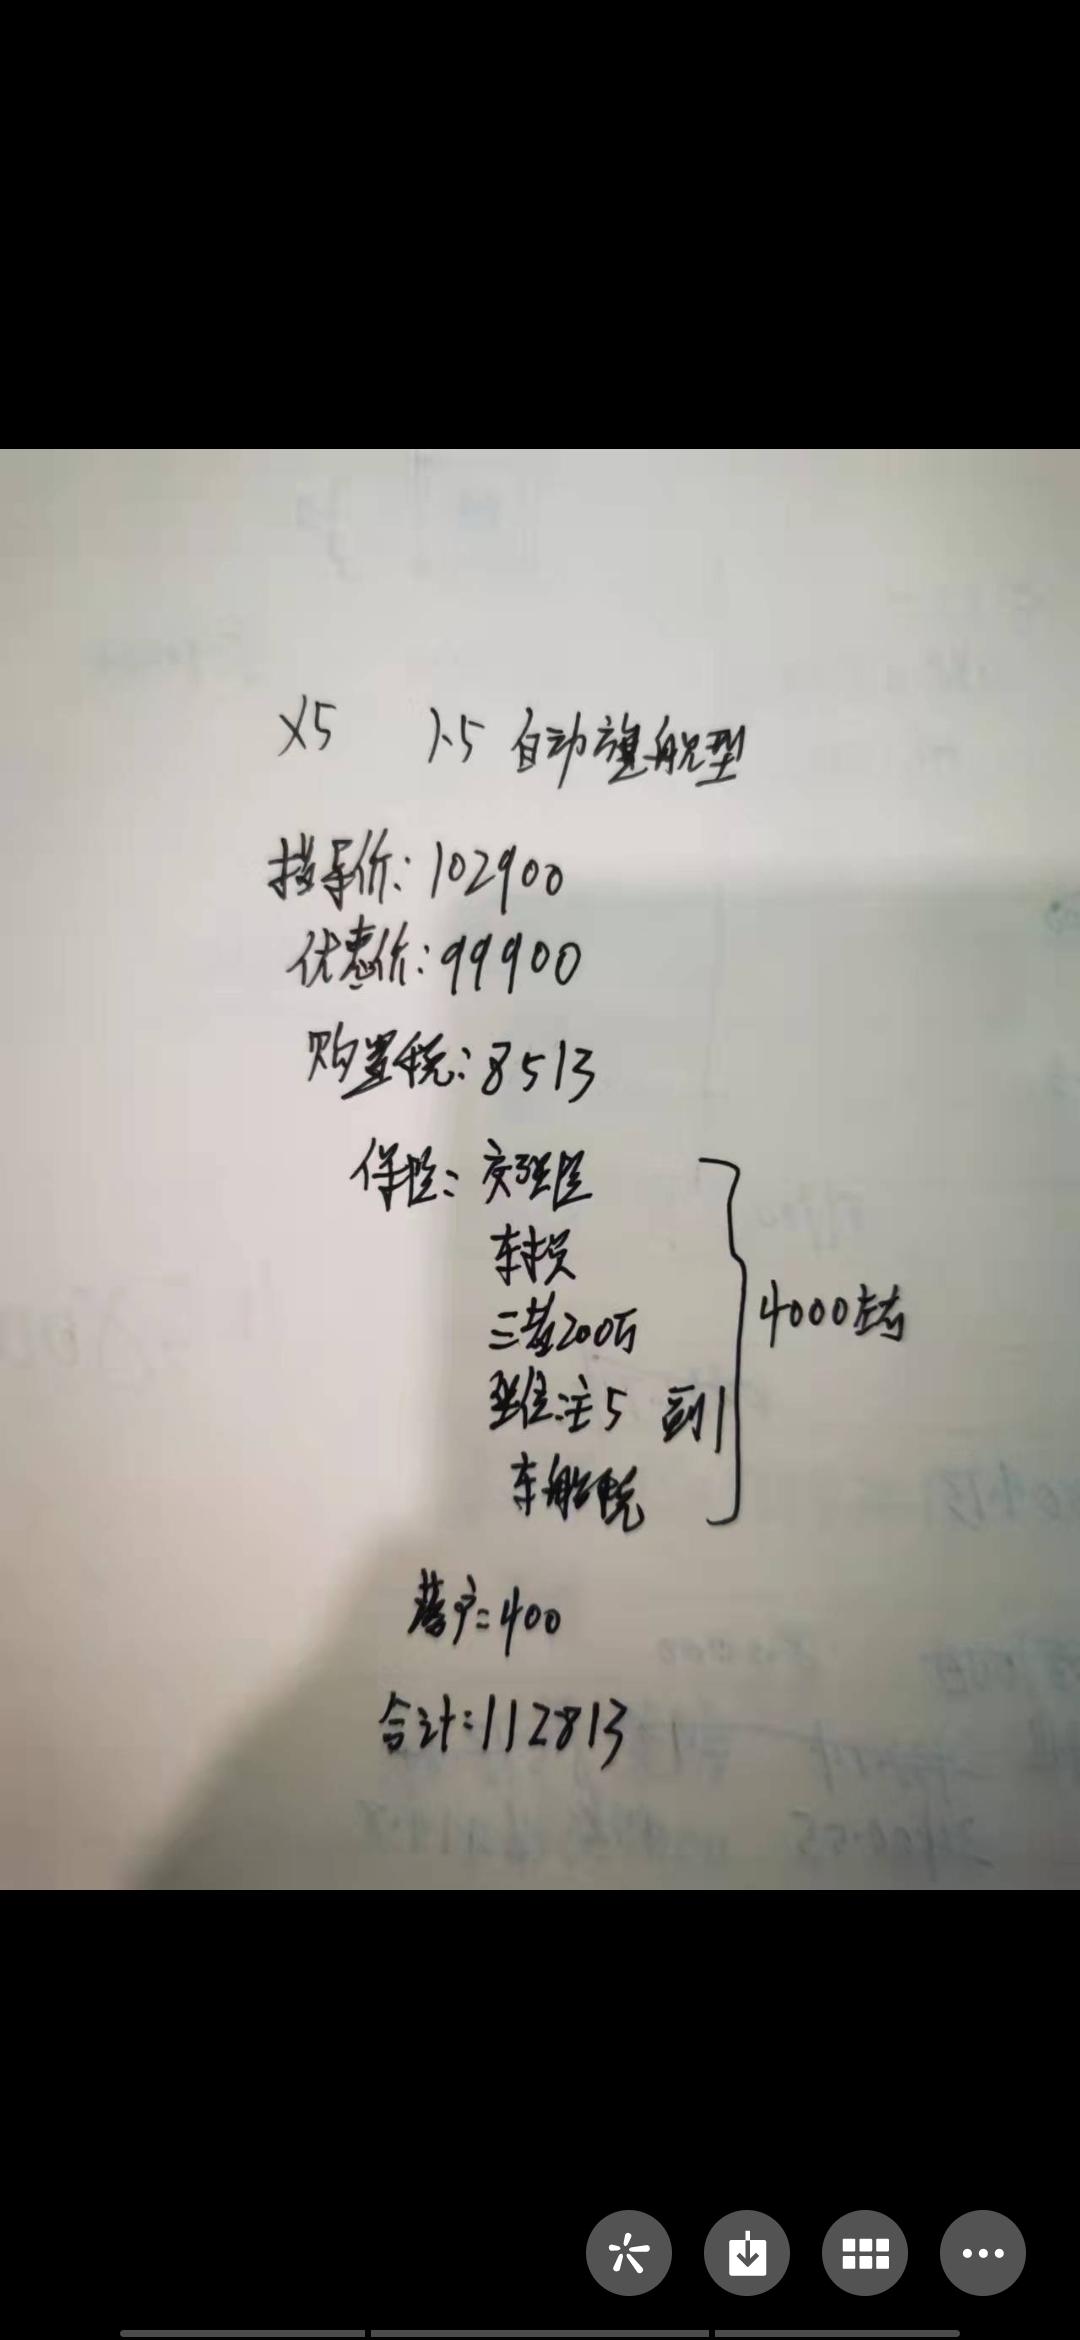 X5 1.5 自动旗舰型
指导价: 102900
优惠价: 99900
购置税: 8513
保险: 交强险
车损
三者200万
座位:主5 副1
车船税
4000左右
落户: 400
合计: 112813